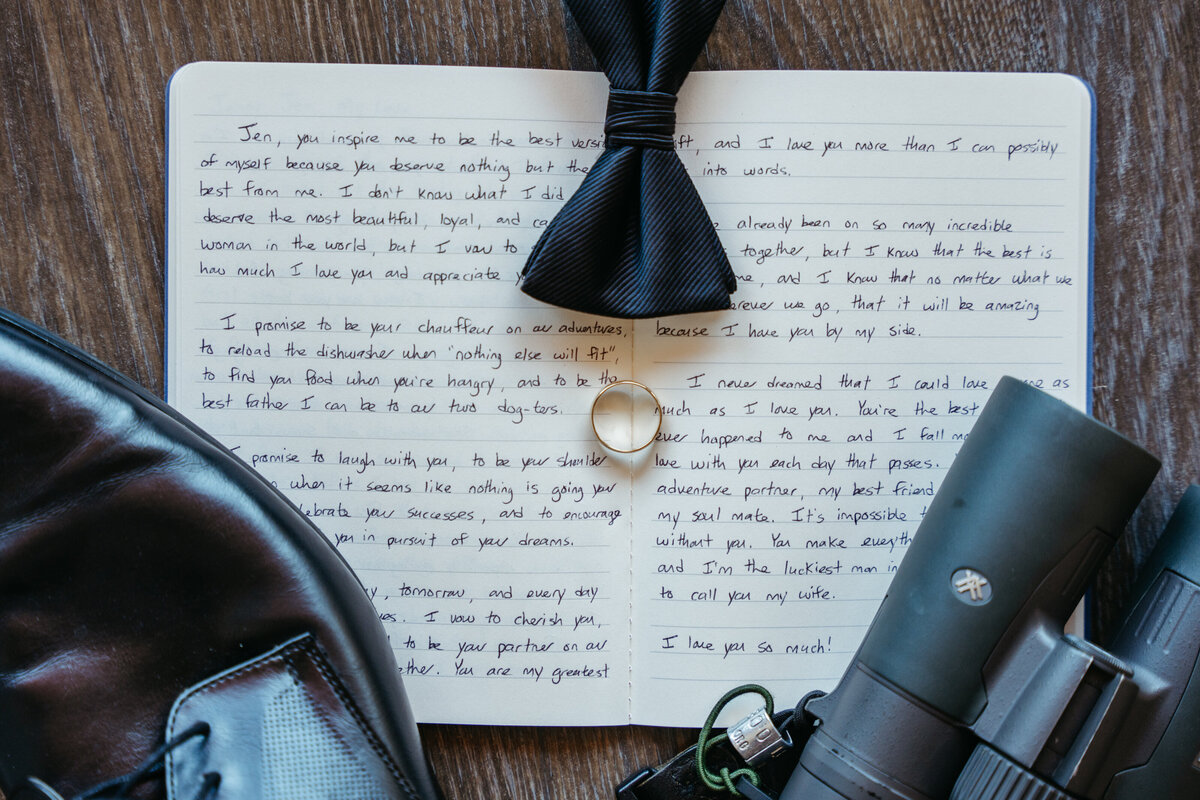 Jen, you inspire me to be the best versi
of myself because you deserve nothing but the
best from me. I don't know what I did
deserve the most beautiful, loyal, and ca
woman in the world, but I vow to
how much I love you and appreciate y
I promise to be your chauffeur on our adventures,
to reload the dishwasher when "nothing else will fit",
to find you food when you're hangry, and to be the
best father I can be to our two dog-ters.
promise to laugh with you, to be your shoulder
when it seems like nothing is going your
lebrate your successes, and to encourage
you in pursuit of your dreams.
ay, tomorrow, and every day
ves. I vow to cherish you,
to be your partner on our
ether. You are my greatest
ift, and I love you more than I can possibly
into words.
already been on so many incredible
together, but I know that the best is
me, and I know that no matter what we
erever we go, that it will be amazing
because I have you by my side.
I never dreamed that I could love me as
much as I love you. You're the best
ever happened to me and I fall mo
love with you each day that passes.
adventure partner, my best friend
my soul mate. It's impossible t
without you. You make everyth
and I'm the luckiest man in
to call you my wife.
I love you so much!